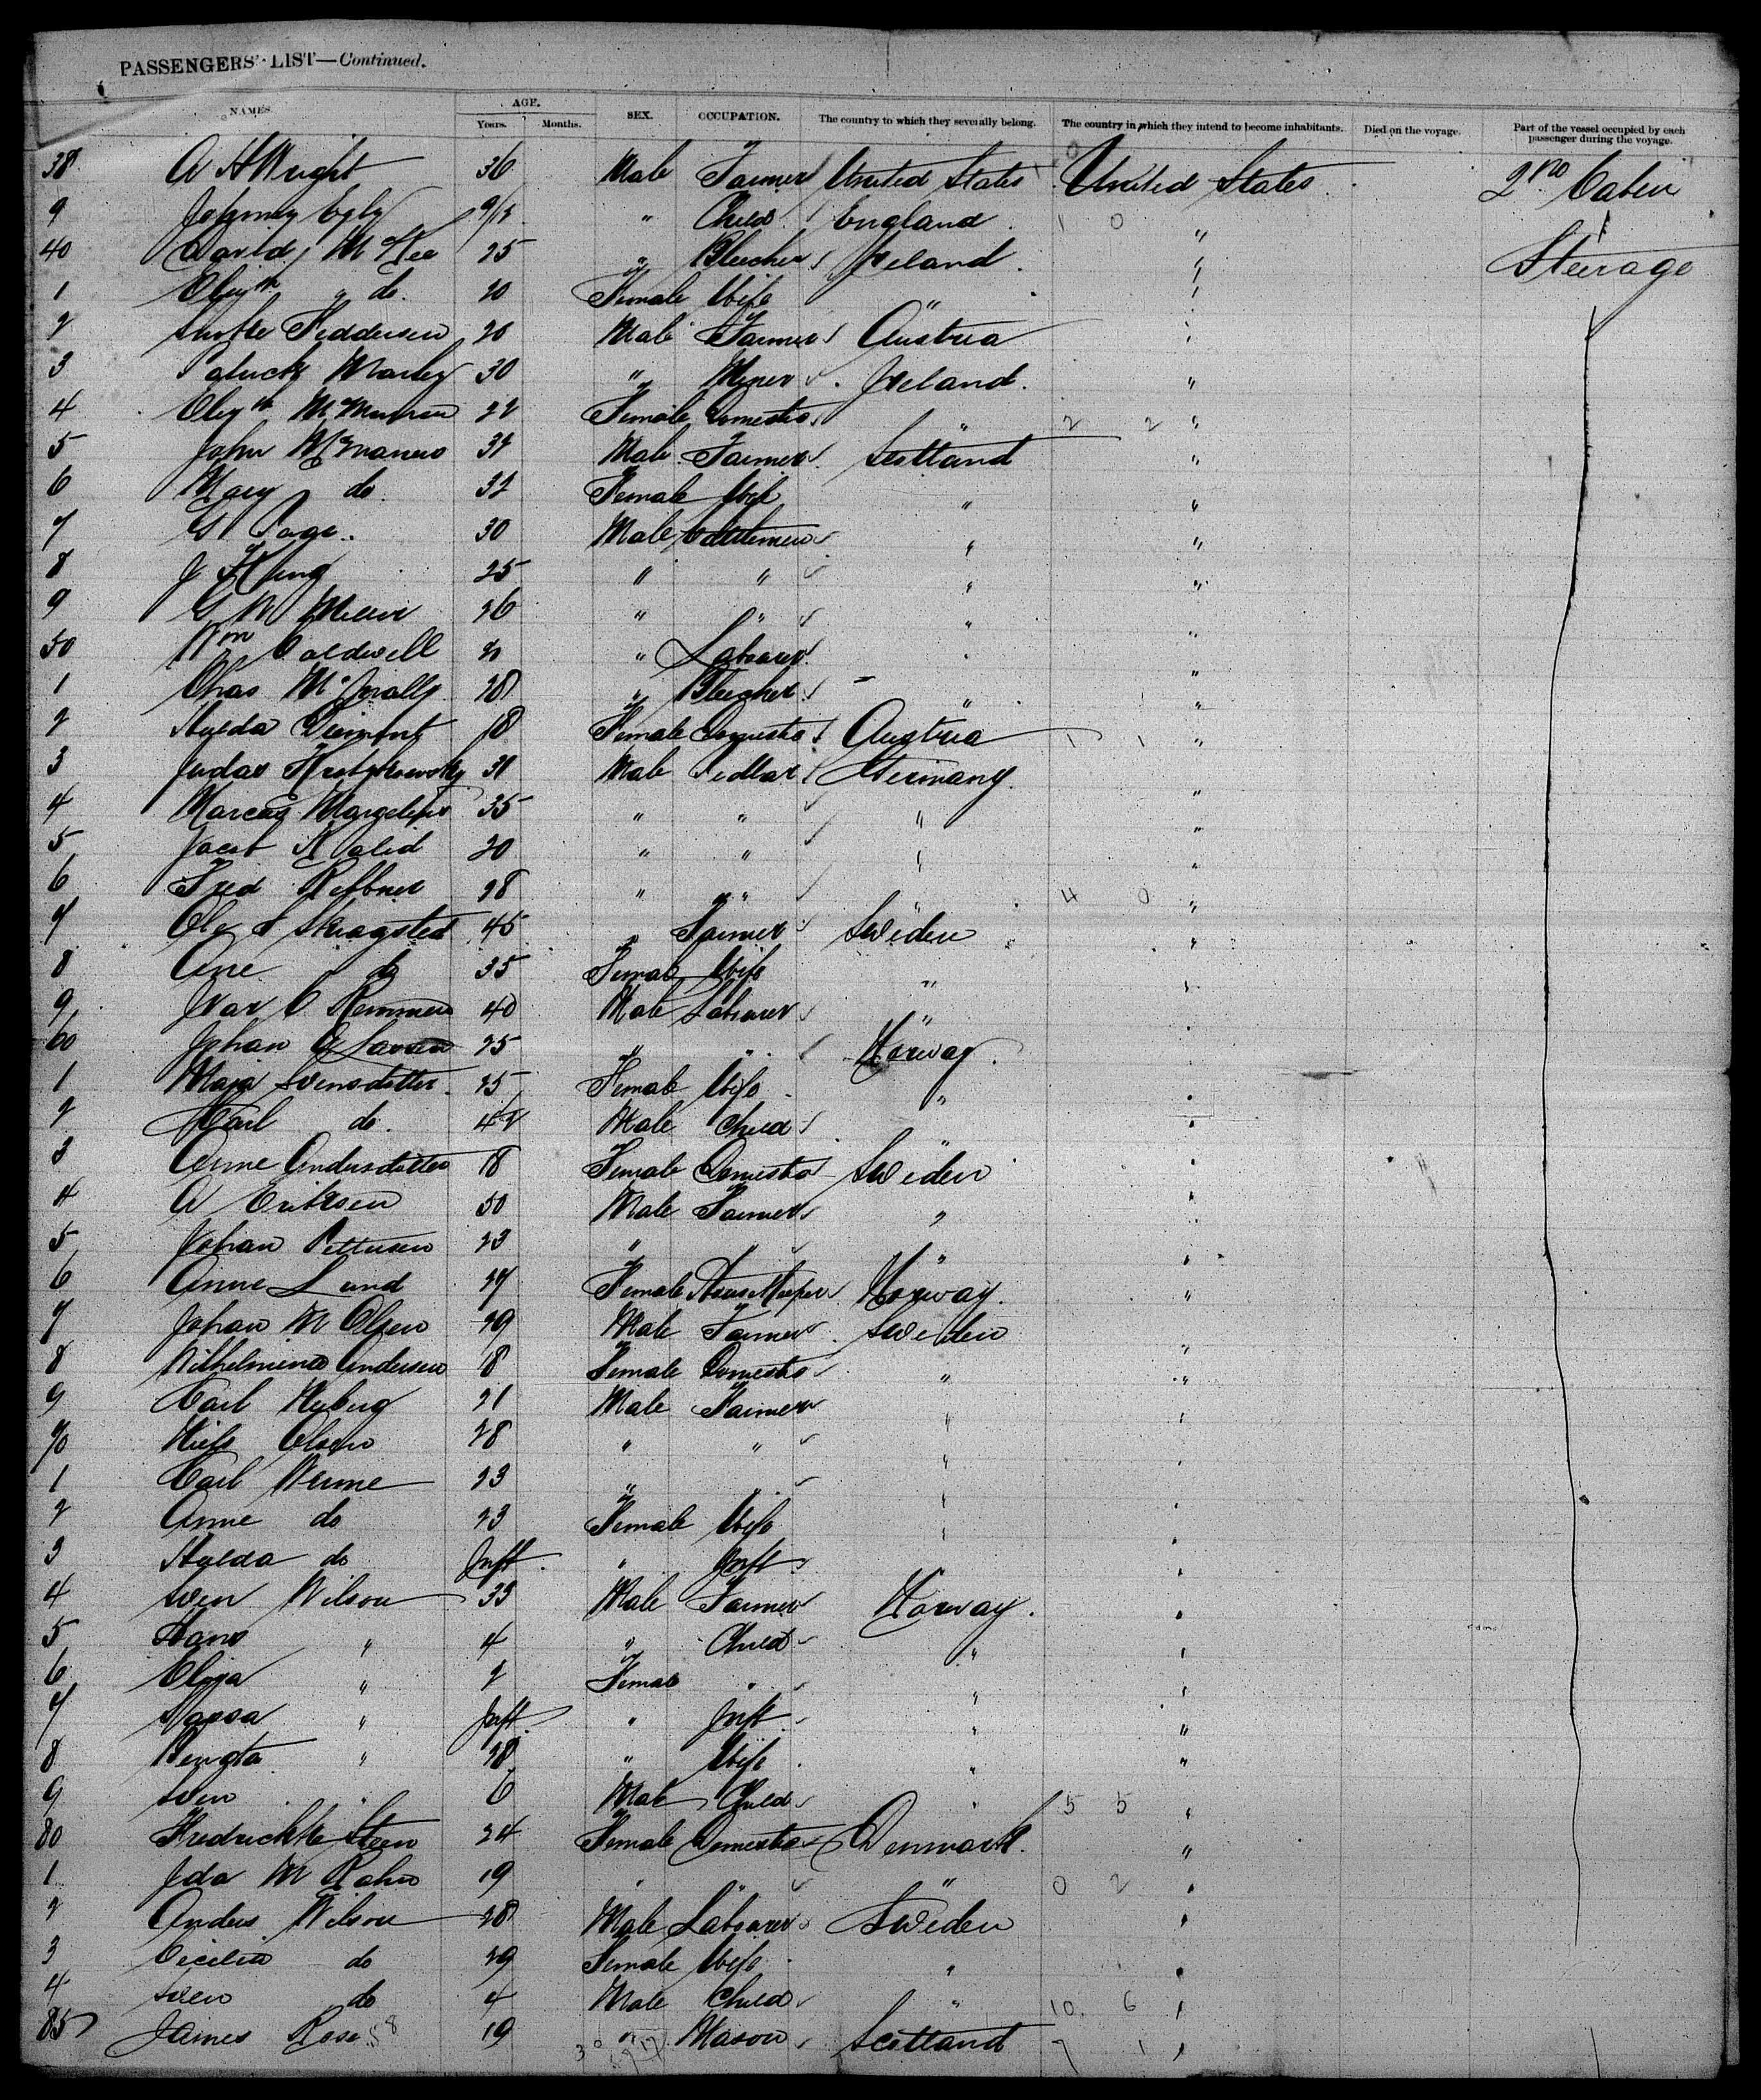 PASSENGERS' LIST—Continued.
NAMES. AGE. Years. Months. SEX. OCCUPATION. The country to which they severally belong. The country in which they intend to become inhabitants. Died on the voyage. Part of the vessel occupied by each passenger during the voyage.
38 A H Wright 36 Male Farmer United States United States 2nd Cabin
9 Johnny 9/12 " Child England 1 0 "
40 David McKee 25 " Bleecher Ireland " Steerage
1 Elizth " do. 20 Female Wife " "
2 Feddersen 20 Male Farmer Austria "
3 Patrick Marley 30 " Miner Ireland. "
4 Elizth 22 Female Domestic " 2 2 "
5 John McManus 32 Male Farmer Scotland "
6 Mary do. 32 Female Wife " "
7 G Page. 30 Male Cattlemen " "
8 J King 25 " " " "
9 G W Miller 26 " " " "
50 Wm Caldwell " Labourer " "
1 Chas McInally 28 " Bleecher " "
2 Hulda 18 Female Domestic Austria 1 1 "
3 Judas 31 Male Pedlar Germany. "
4 Marcus 35 " " " "
5 Jacob 20 " " " "
6 Fred 28 " " " 4 0 "
7 Ole 45 " Farmer Sweden "
8 Ane do 35 Female Wife " "
9 Ivar O Remmen 40 Male Labourer " "
60 Johan Larsen 25 " " Norway. "
1 Maja Svensdotter 25 Female Wife "
2 Carl do. Male Child "
3 Anne Andersdotter 18 Female Domestic Sweden "
4 A Eriksen 50 Male Farmer " "
5 Johan Pettersen 23 " " " "
6 Anne Lund 27 Female House Keeper Norway. "
7 Johan M Olsen 29 Male Farmer Sweden "
8 Wilhelmina Andersen 18 Female Domestic " "
9 Carl Nyberg 21 Male Farmer " "
70 Niels Olsen 28 " " " "
1 Carl Werme 23 " " " "
2 Anne do 23 Female Wife " "
3 Hulda do Inft. " Inft "
4 Sven Nilson 33 Male Farmer Norway. "
5 Hans " 4 " Child " "
6 Elna " 2 Female " " "
7 " Inft. " Inft " "
8 Bengta " 28 " Wife " "
9 Sven " 6 Male Child " 5 5 "
80 Fredrickke Steen 24 Female Domestic Denmark. "
1 Ida M Rahn 19 " " " 0 2 "
2 Anders Nilson 28 Male Labourer Sweden "
3 Cecilia do 29 Female Wife " "
4 Sven do 4 Male Child " 10 6 "
85 James Rose 58 19 " Mason Scotland 7 1 "